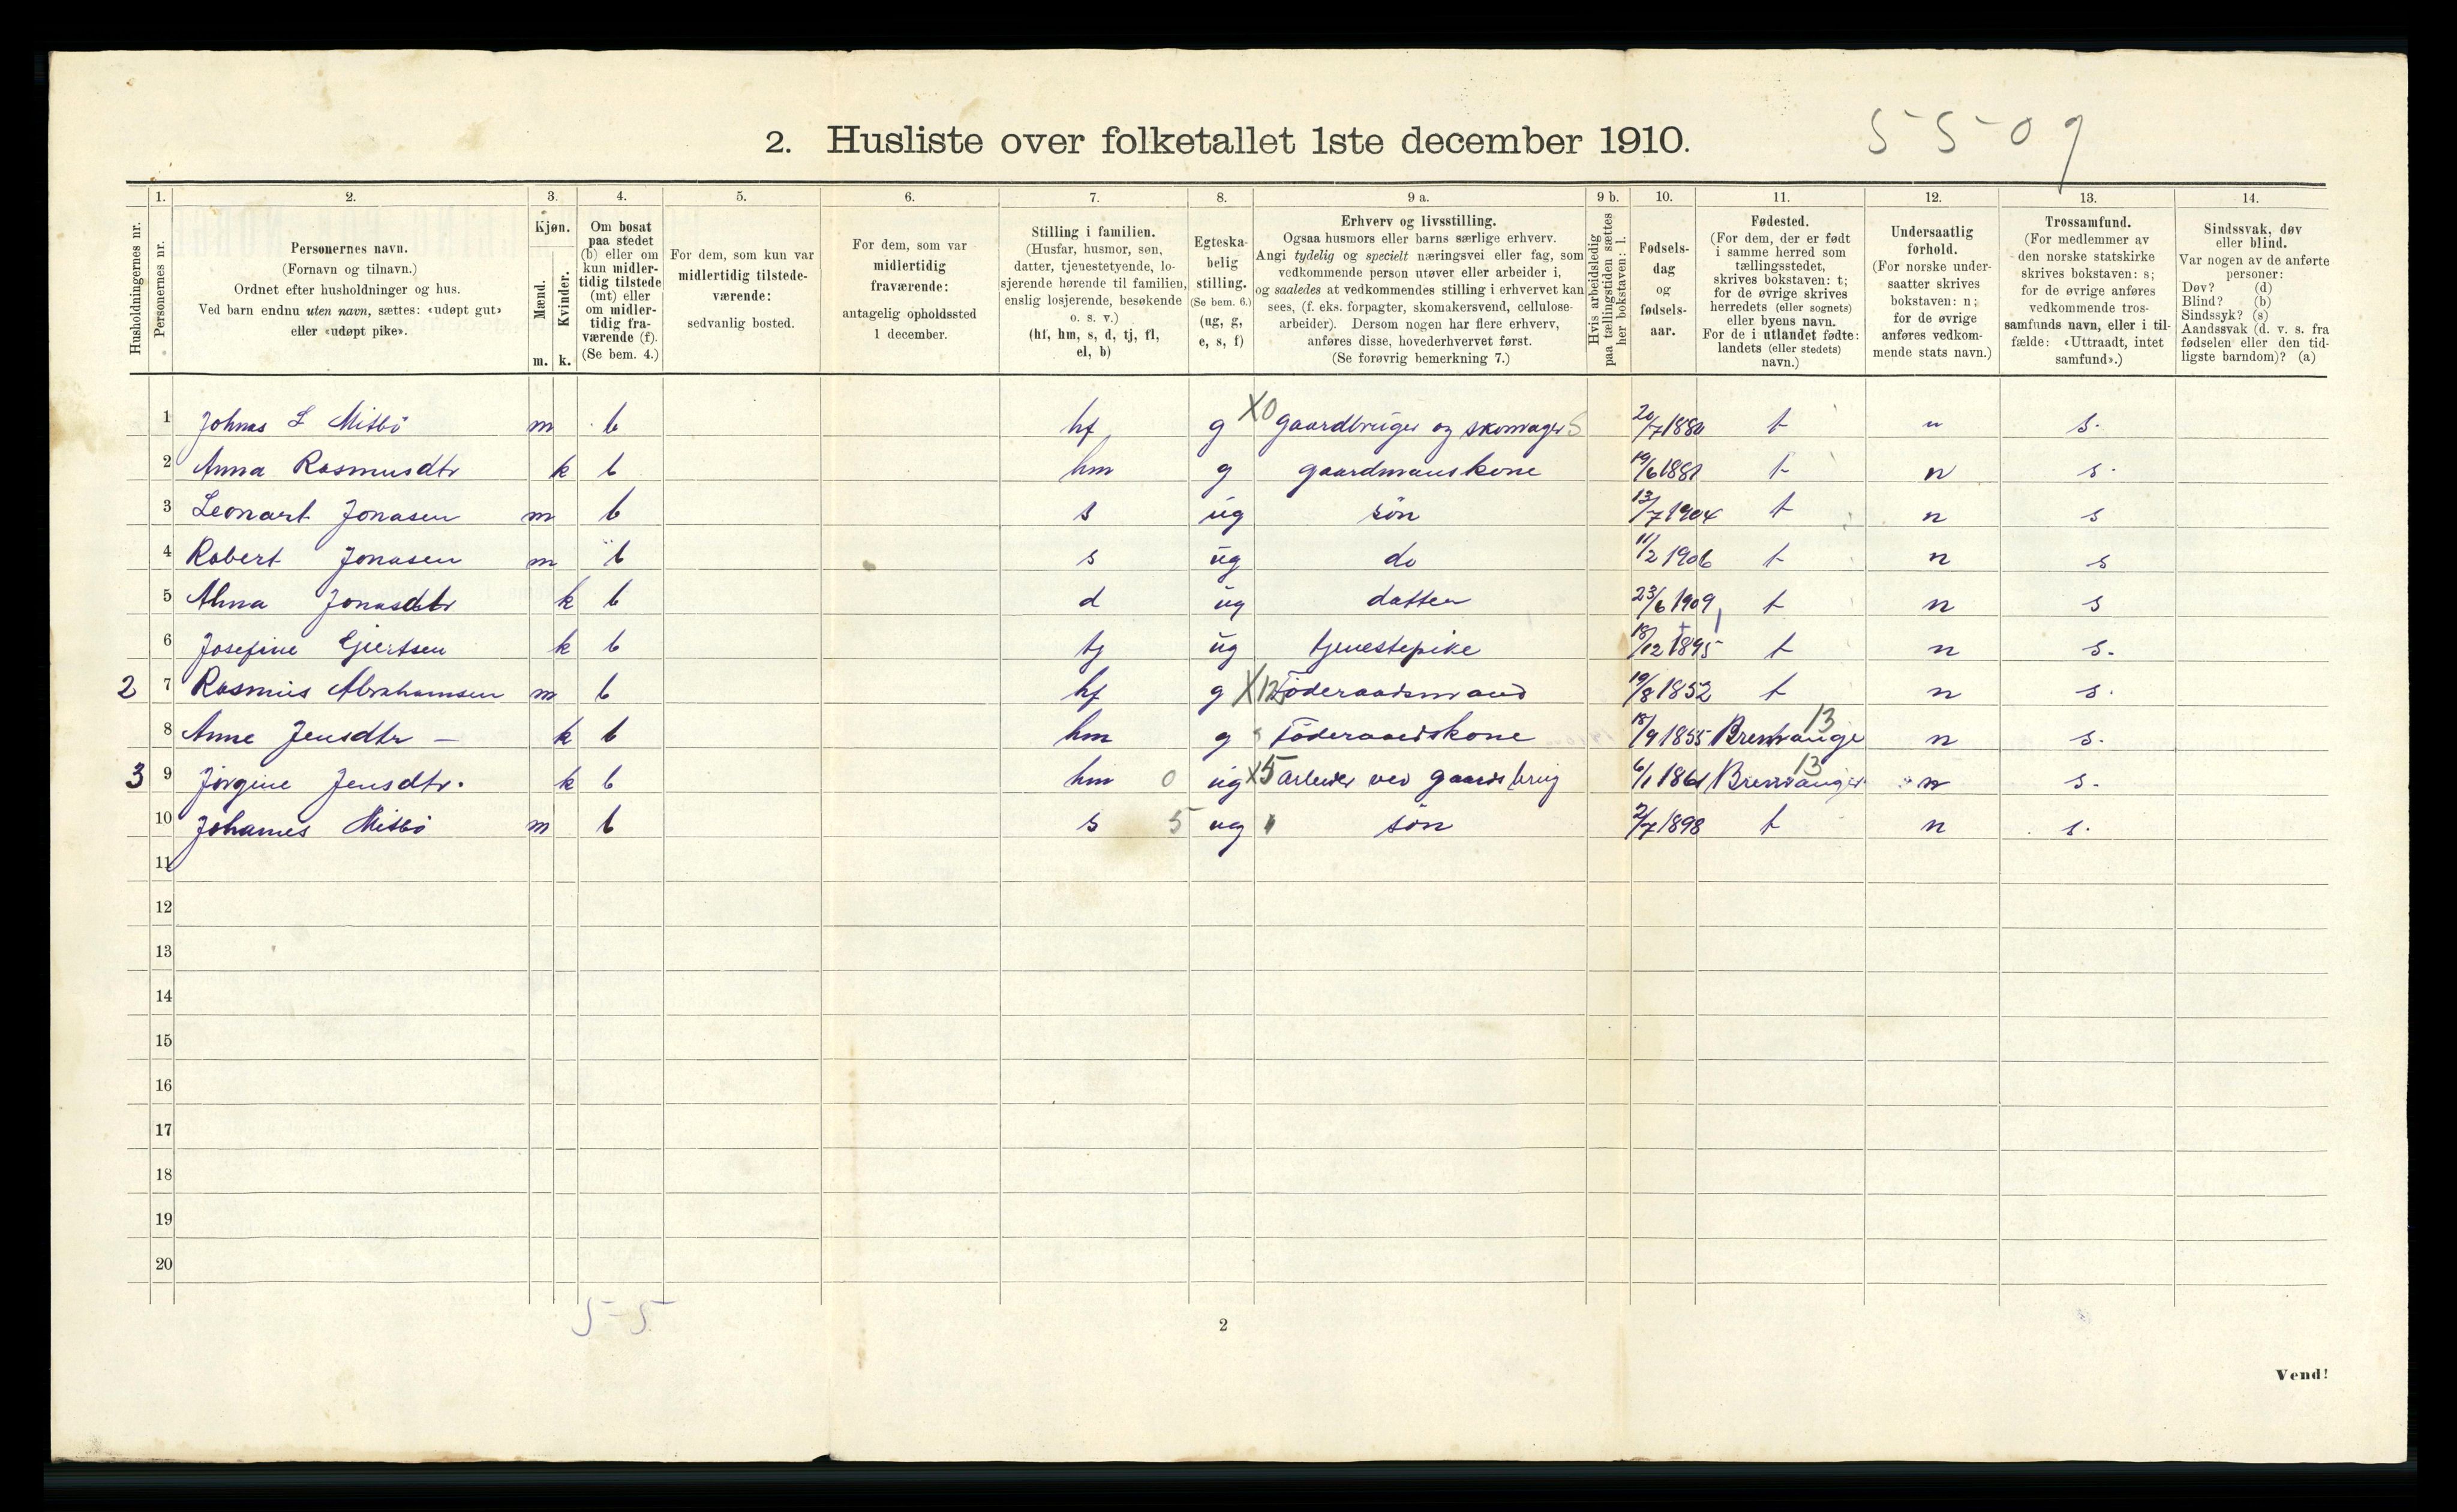 5-5-09
2. Husliste over folketallet 1ste december 1910.
1. 2. 3. 4. 5. 6. 7. 8. 9 a. 9 b. 10. 11. 12. 13. 14.
Husholdningernes nr.
Personernes nr.
Personernes navn.
(Fornavn og tilnavn.)
Ordnet efter husholdninger og hus.
Ved barn endnu uten navn, sættes: «udøpt gut»
eller «udøpt pike».
Kjøn.
Mænd.
Kvinder.
m. k.
Om bosat
paa stedet
(b) eller om
kun midler-
tidig tilstede
(mt) eller
om midler-
tidig fra-
værende (f).
(Se bem. 4.)
For dem, som kun var
midlertidig tilstede-
værende:
sedvanlig bosted.
For dem, som var
midlertidig
fraværende:
antagelig opholdssted
1 december.
Stilling i familien.
(Husfar, husmor, søn,
datter, tjenestetyende, lo-
sjerende hørende til familien,
enslig losjerende, besøkende
o. s. v.)
(hf, hm, s, d, tj, fl,
el, b)
Egteska-
belig
stilling.
(Se bem. 6.)
(ug, g,
e, s, f)
Erhverv og livsstilling.
Ogsaa husmors eller barns særlige erhverv.
Angi tydelig og specielt næringsvei eller fag, som
vedkommende person utøver eller arbeider i,
og saaledes at vedkommendes stilling i erhvervet kan
sees, (f. eks. forpagter, skomakersvend, cellulose-
arbeider). Dersom nogen har flere erhverv,
anføres disse, hovederhvervet først.
(Se forøvrig bemerkning 7.)
Hvis arbeidsledig
paa tællingstiden sættes
her bokstaven: l.
Fødsels-
dag
og
fødsels-
aar.
Fødested.
(For dem, der er født
i samme herred som
tællingsstedet,
skrives bokstaven: t;
for de øvrige skrives
herredets (eller sognets)
eller byens navn.
For de i utlandet fødte:
landets (eller stedets)
navn.)
Undersaatlig
forhold.
(For norske under-
saatter skrives
bokstaven: n;
for de øvrige
anføres vedkom-
mende stats navn.)
Trossamfund.
(For medlemmer av
den norske statskirke
skrives bokstaven: s;
for de øvrige anføres
vedkommende tros-
samfunds navn, eller i til-
fælde: «Uttraadt, intet
samfund».)
Sindssvak, døv
eller blind.
Var nogen av de anførte
personer:
Døv? (d)
Blind? (b)
Sindssyk? (s)
Aandssvak (d. v. s. fra
fødselen eller den tid-
ligste barndom)? (a)
1 Johnas L Misbö m b hf g X0 gaardbruger og skomager S 20/7 1880 t n s.
2 Anna Rasmusdtr k b hm g gaardmanskone 19/6 1881 t n s.
3 Leonart Jonasen m b s ug sön 13/7 1904 t n s
4 Robert Jonasen m b s ug do 11/2 1906 t n s
5 Alma Jonasdtr k b d ug datter 23/6 1909 t n s
6 Josefine Gjertsen k b tj ug tjenestepike 18/12 1895 t n s.
2 7 Rasmus Abrahamsen m b hf g X12 Föderaadsmand 19/8 1852 t n s.
8 Anne Jensdtr - k b hm g Föderaadskone 18/9 1855 Bremanger 13 n s.
3 9 Jörgine Jensdtr. k b hm 0 ug X5 Arbeider ved gaardsbrug 6/1 1861 Bremanger 13 n s.
10 Johannes Misbö m b s 5 ug sön 2/7 1898 t n s.
11
12
13
14
15
16
17
18
19
20
5-5
2
Vend!